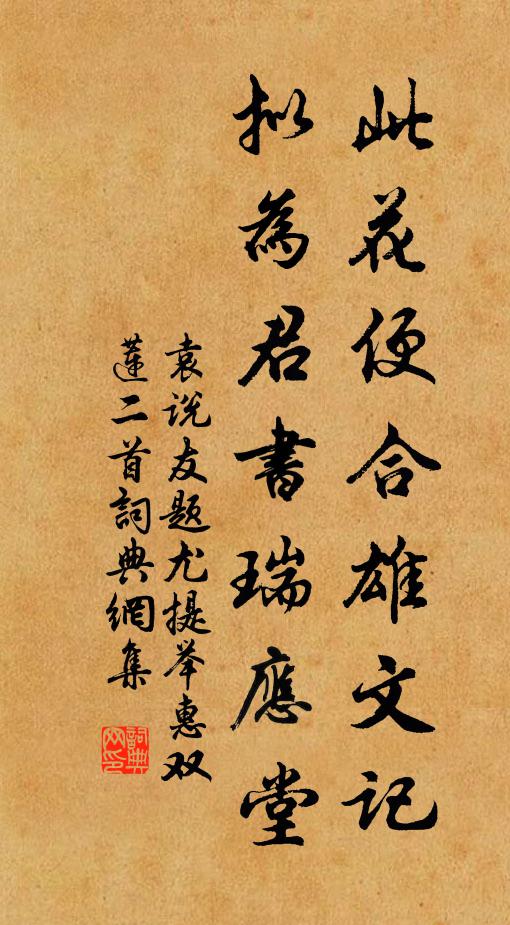 此花便合雄文记
拟為君書瑞應堂
袁说友题尤提举惠双
蓮二首詞典網集
詞典
网印